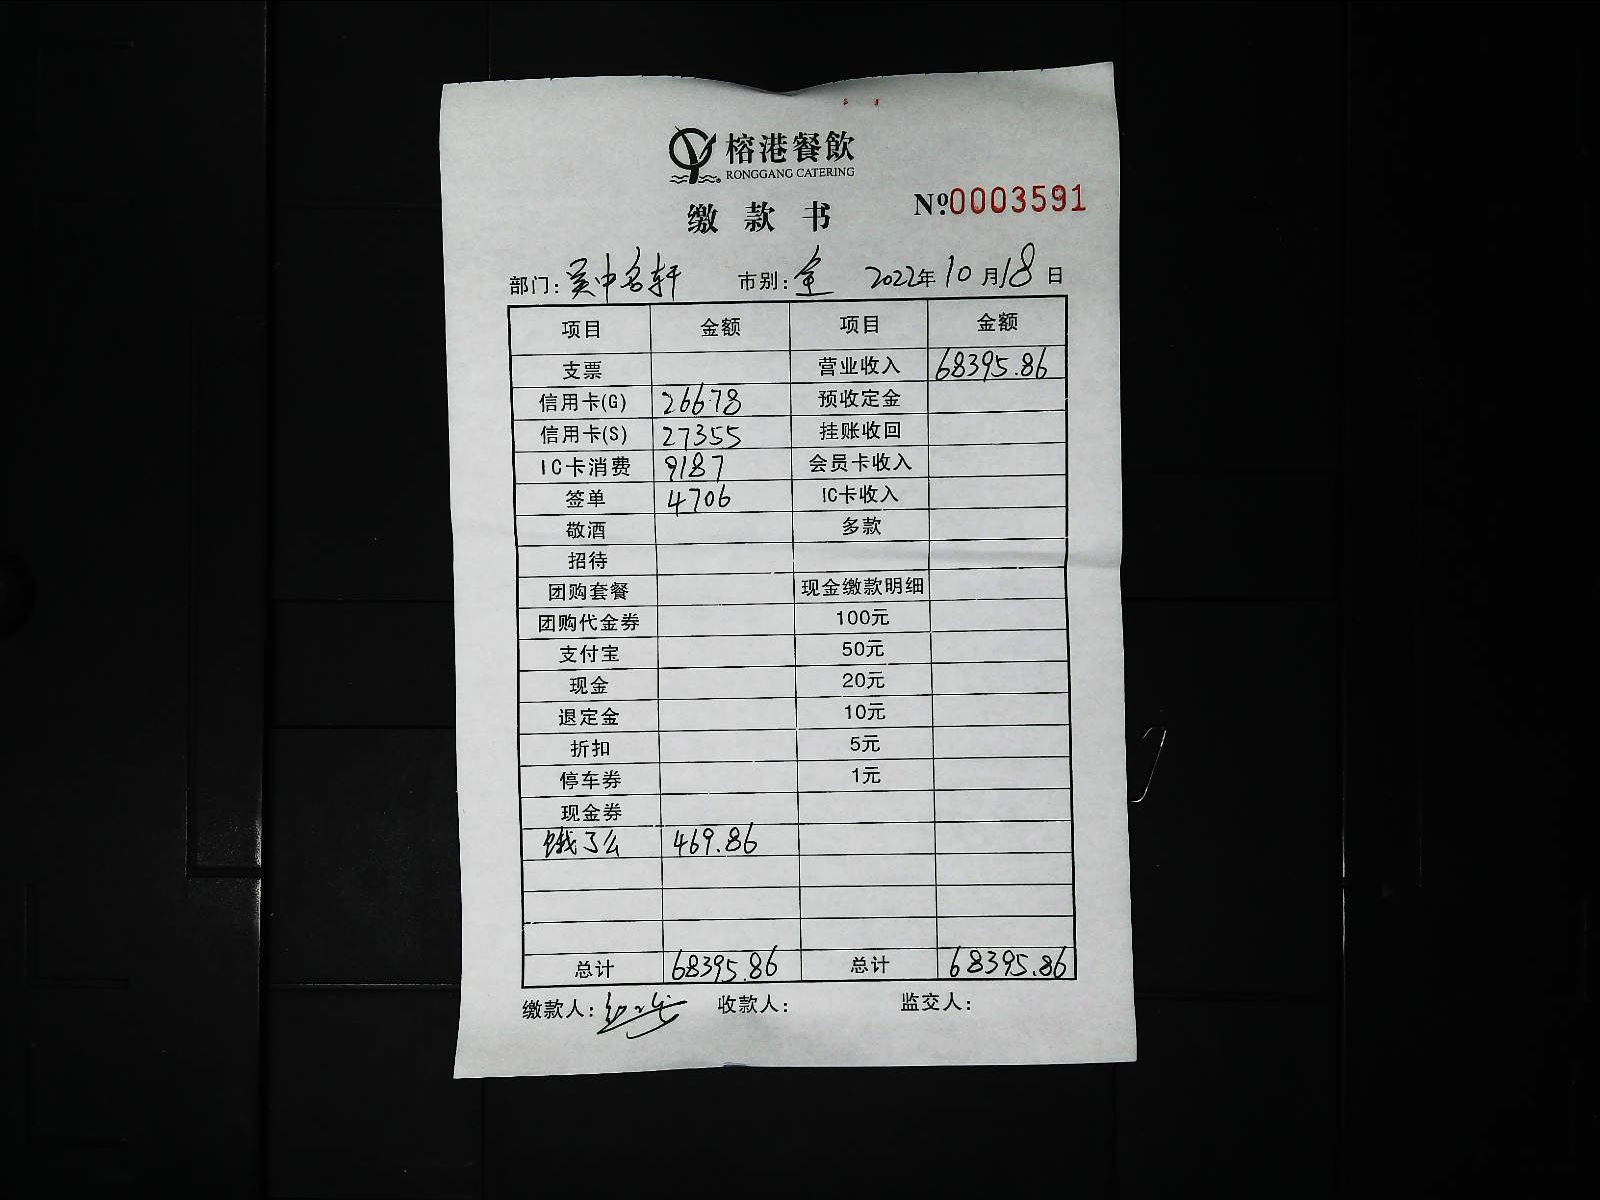 榕港餐飲
RONGGANG CATERING
缴款书 №0003591
部门:吴中名轩 市别:全 2022年10月18日
项目 金额 项目 金额
支票 营业收入 68395.86
信用卡(G) 26678 预收定金
信用卡(S) 27355 挂账收回
IC卡消费 9187 会员卡收入
签单 4706 IC卡收入
敬酒 多款
招待
团购套餐 现金缴款明细
团购代金券 100元
支付宝 50元
现金 20元
退定金 10元
折扣 5元
停车券 1元
现金券
饿了么 469.86
总计 68395.86 总计 68395.86
缴款人: 收款人: 监交人: